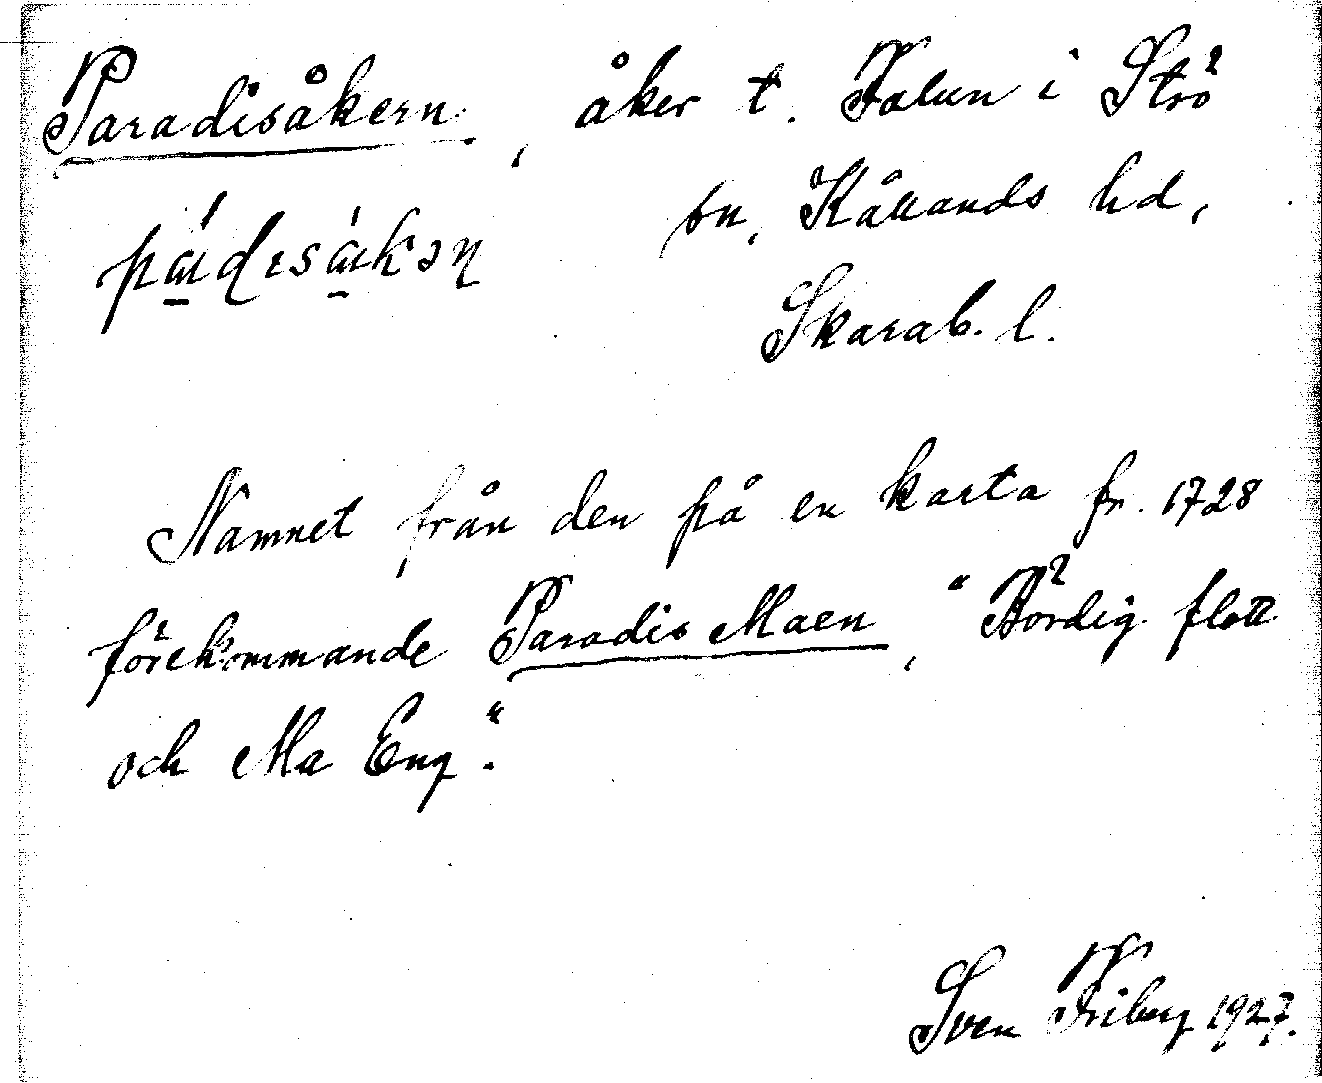 Paradisåkern, åker t. Falun i Strö
sn, Kållands hd,
Skarab. l.
Namnet från den på en karta fr. 1728
förekommande Paradis Maen, "Bördig flott
och Ma Eng".
Sven Friberg 1927.